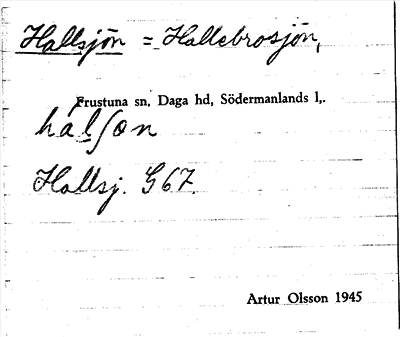 Hallsjön = Hallebrosjön,
Frustuna sn, Daga hd, Södermanlands l,.
hálʃön
Hallsj. G67.
Artur Olsson 1945